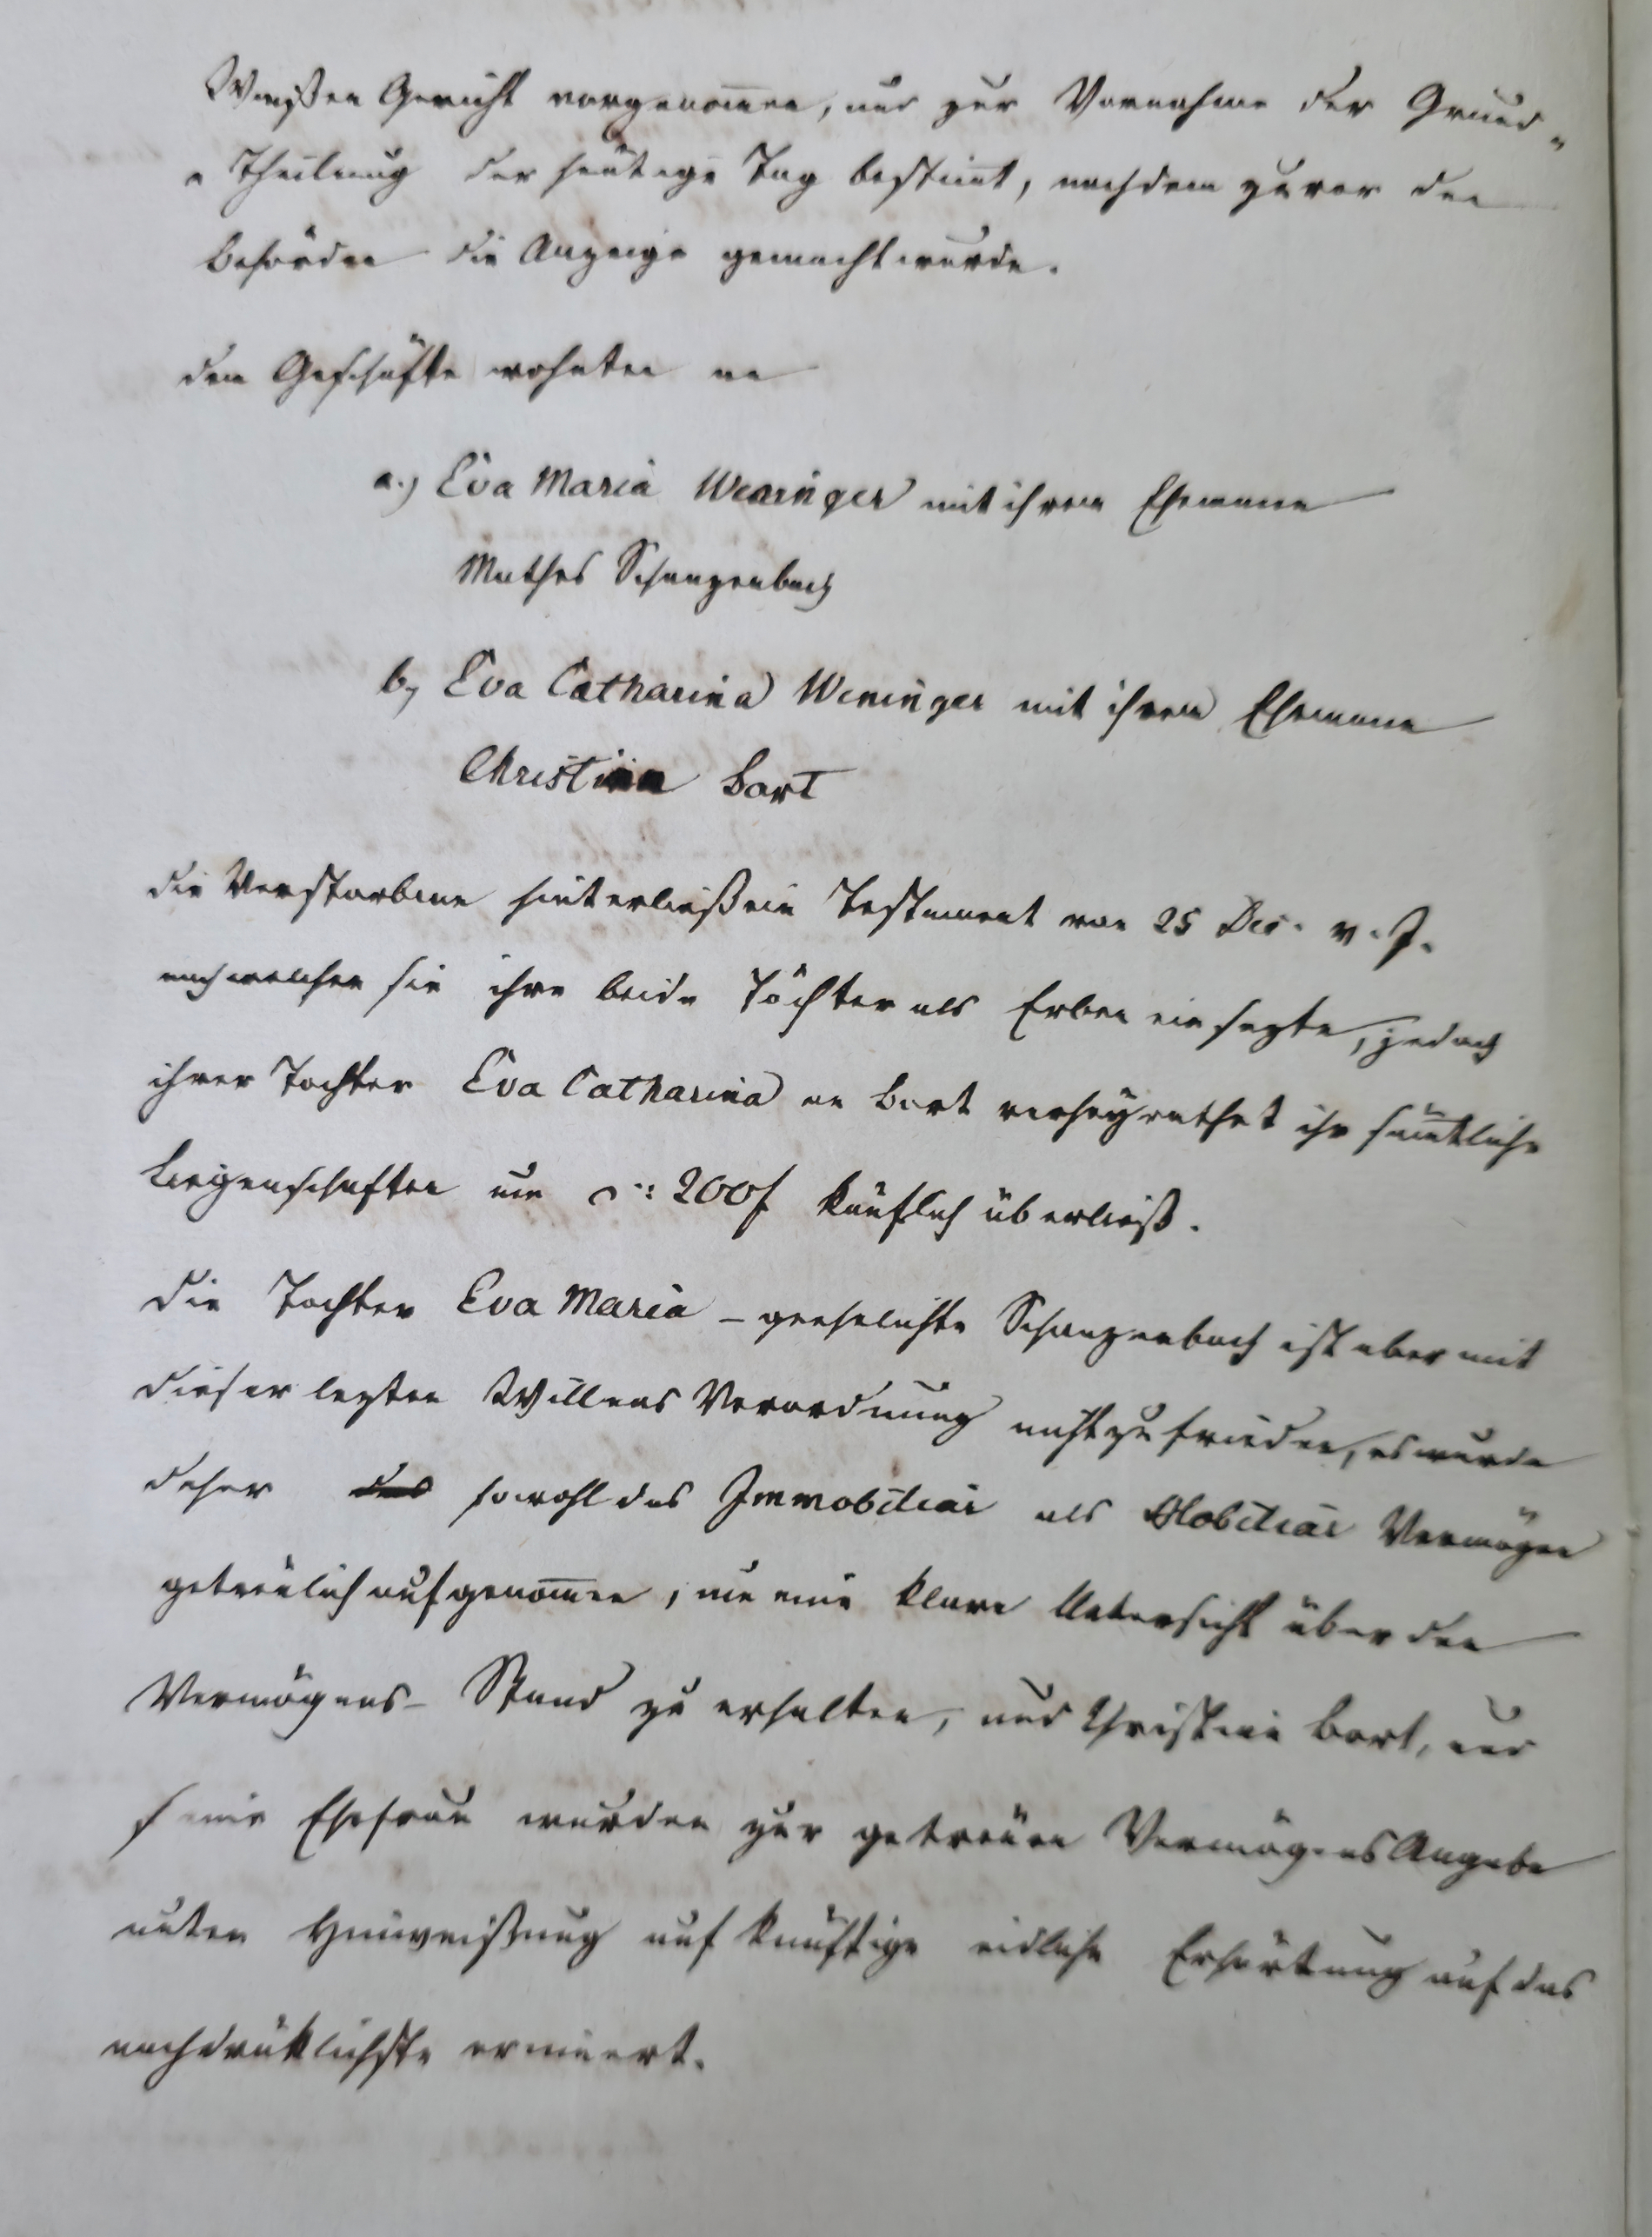 Waißen Gericht vorgenom̅en, und zur Vornahme der Grund-
-Theilung der heutige Tag bestim̅t, nachdem zuvor den
Behörden die Anzeige gemacht wurde.
dem Geschäfte wohnten an
a.) Eva Maria Weninger mit ihrem Ehemann
Mathes Schanzenbach
b, Eva Catharina Weninger mit ihrem Ehemann
Christian Bort
die Verstorbene hinterließ ein Testament vom 25 Dec. v. J.
nach welchem sie ihre beide Töchter als Erben einsezte, jedoch
ihrer Tochter Eva Catharina an Bort verheyrathet ihr sämtliche
Liegenschaften um 200f käuflich überließ.
die Tochter Eva Maria - geehelichte Schanzenbach ist aber mit
dieser lezten Willens Verordnung nicht zufrieden, es wurde
daher das sowohl das Immobiliar als Mobiliar Vermögen
getreulich aufgenom̅en, um eine klare Uebersicht über den
Vermögens- Stand zu erhalten, und Christian Bort, und
seine Ehefrau wurden zur getreuen Vermögens Angabe
unter Hinweißung auf künftige eidliche Erhärtung auf das
nachdrüklichste erinnert.